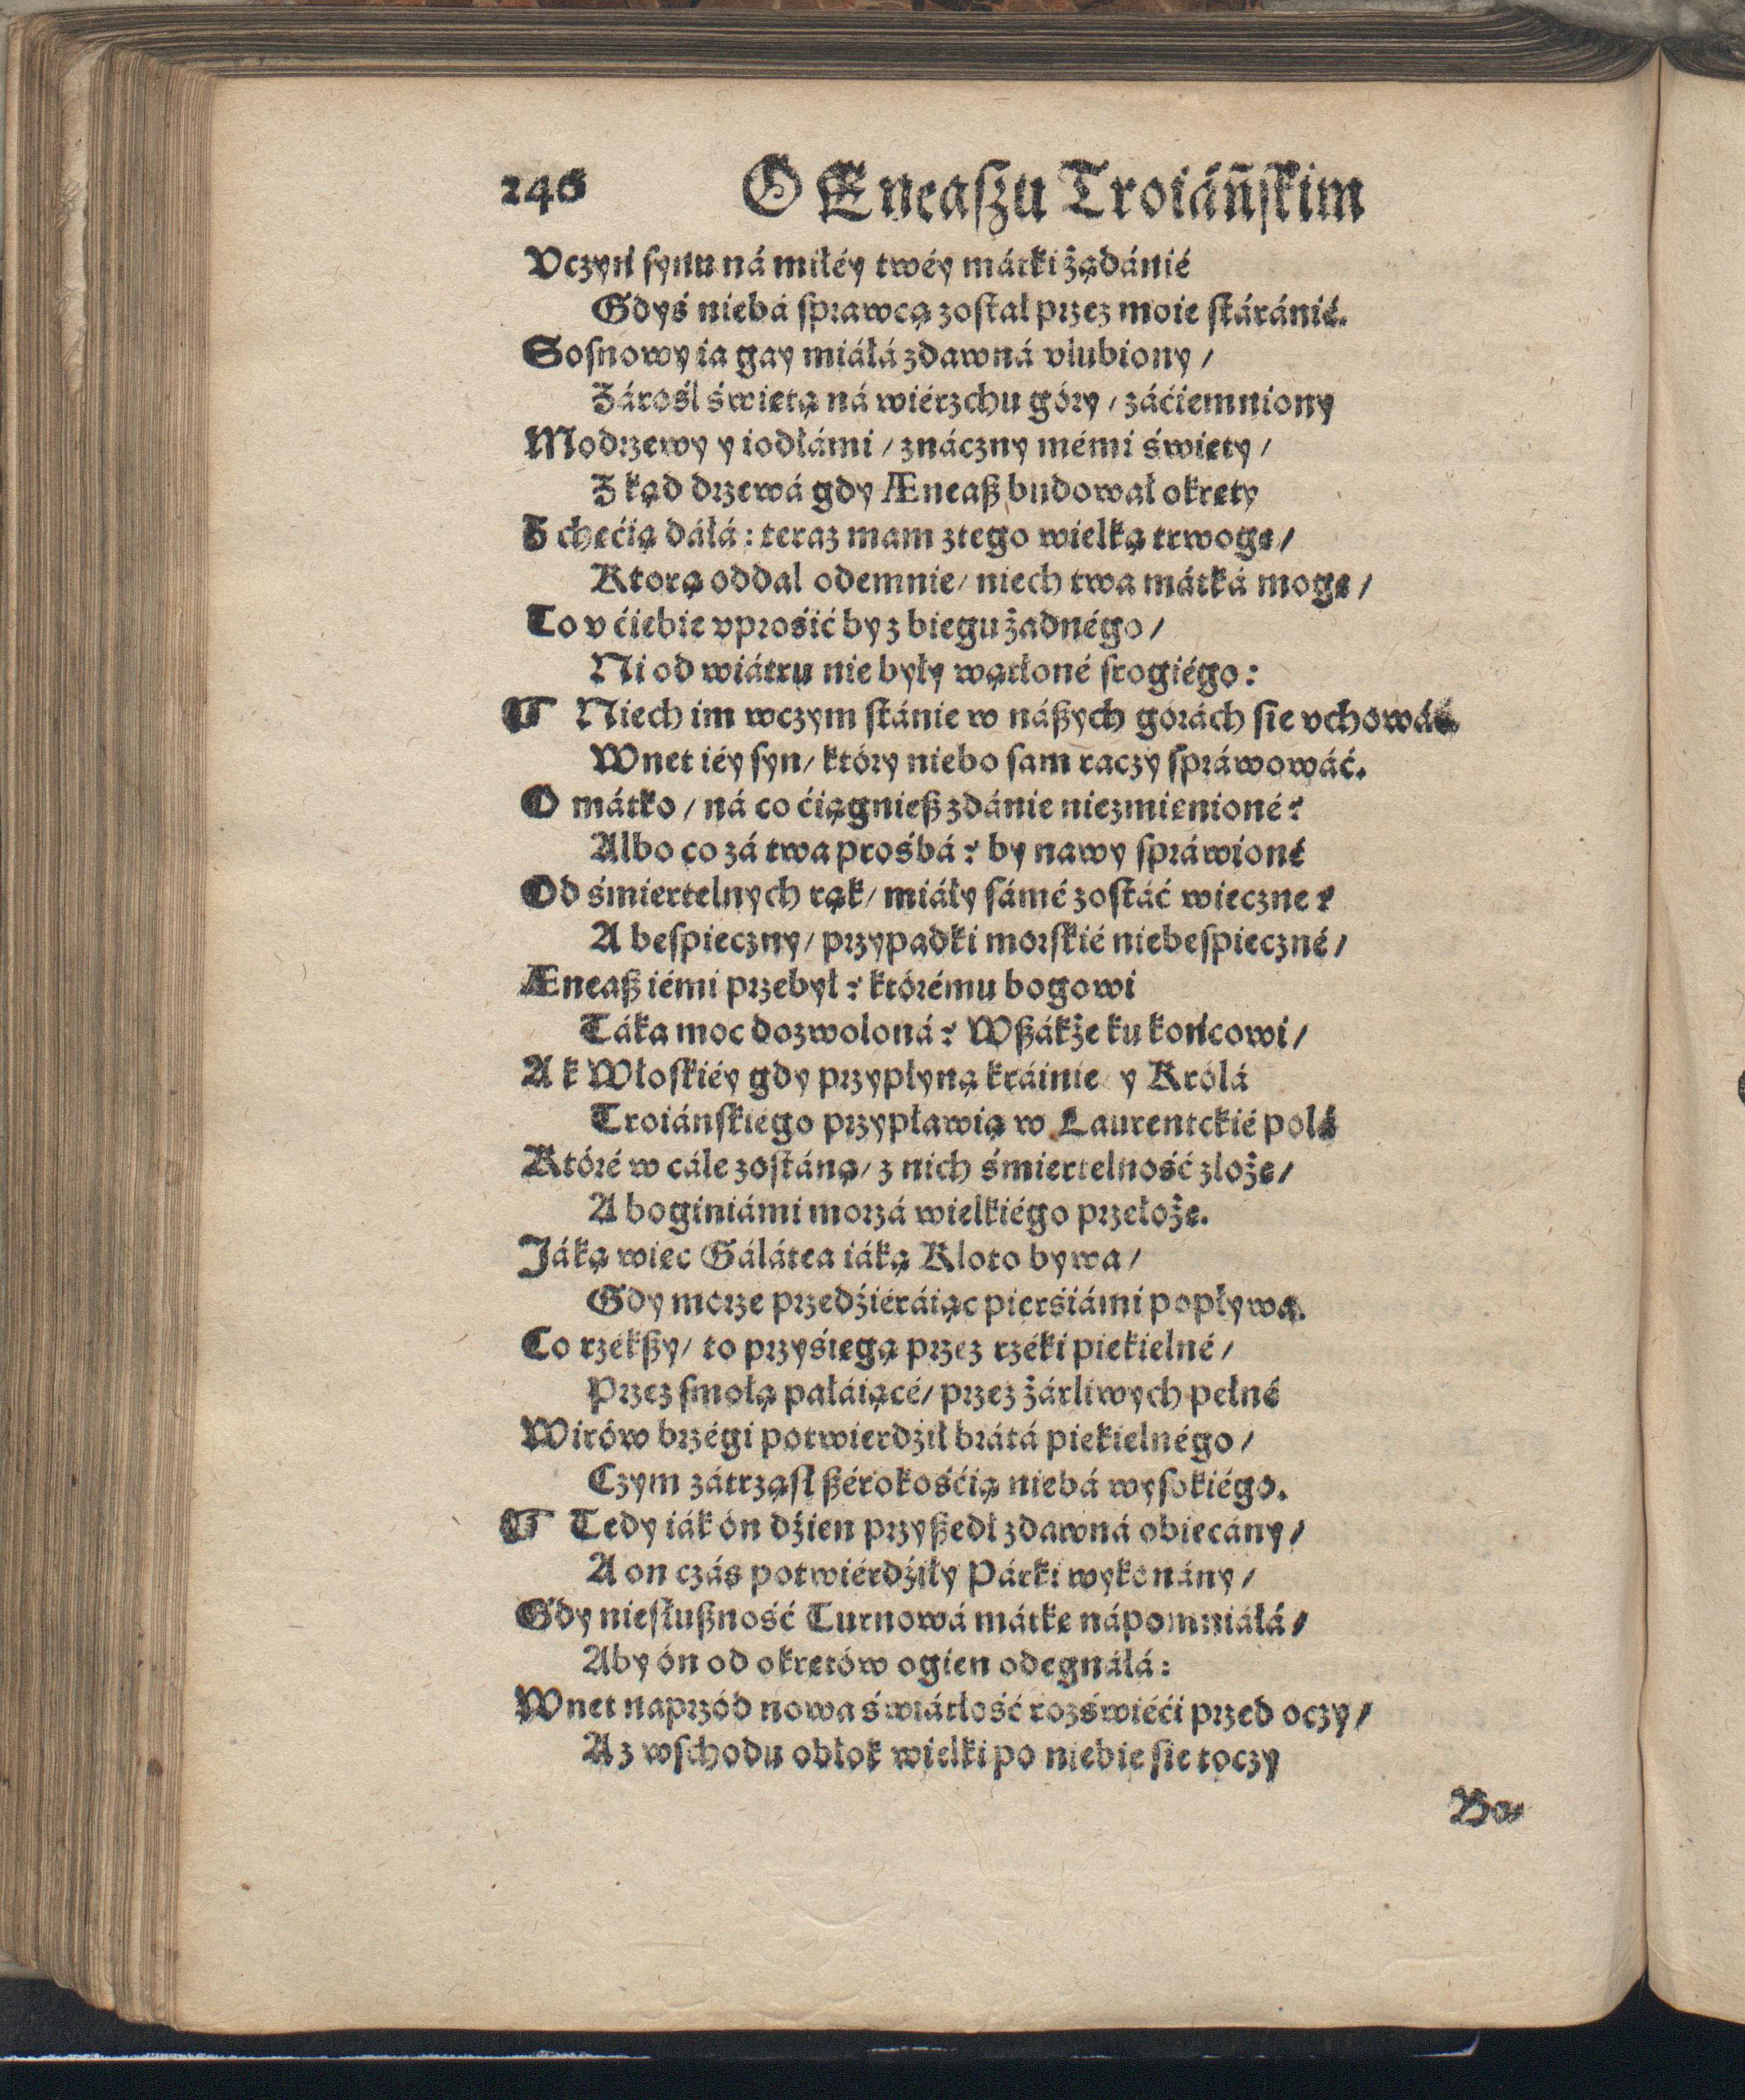 246 O Eneaſzu Troiáñſkim
Vczyń ſynu ná miłéy twéy mátki żądánié
Gdyś niebá ſprawcą zoſtał przez moie ſtáránié.
Soſnowy ia gay miáłá zdawná vlubiony /
Zárośl świętą ná wiérzchu góry / záćiemniony
Modrzewy y iodłámi / znáczny mémi święty /
Z kąd drzewá gdy Æneaß budował okręty
Z chęćią dáłá : teraz mam ztego wielką trwogę /
Ktorą oddal odemnie / niech twa mátká mogę /
To v ćiebie vprośić by z biegu żadnégo /
Ni od wiátru nie były wątłoné ſrogiégo :
☞ Niech im wczym ſtánie w náßych górách ſie vchowáć.
Wnet iéy ſyn / który niebo ſam raczy ſpráwowáć.
O mátko / ná co ćiągnieß zdánie niezmienioné ?
Albo co zá twa prośbá ? by nawy ſpráwioné
Od śmiertelnych rąk / miáły ſámé zoſtáć wieczne ?
A beſpieczny / przypadki morſkié niebeſpieczné /
Æneaß iémi przebył ? którému bogowi
Táka moc dozwoloná ? Wßákże ku końcowi /
A k Włoſkiéy gdy przypłyną kráinie / y Królá
Troiánſkiégo przypławią w Laurentckié polá
Któré w cále zoſtáną / z nich śmiertelność złożę /
A boginiámi morzá wielkiégo przełożę.
Jáką więc Gálátea iáką Kloto bywa /
Gdy morze przedźiéráiąc pierśiámi popływa.
Co rzékßy / to przyśięgą przez rzéki piekielné /
Przez ſmołą pałáiącé / przez żárliwych pełné
Wirów brzégi potwierdźił brátá piekielnégo /
Czym zátrząſł ßérokośćią niebá wyſokiégo.
☞ Tedy iák ón dźien przyßedł zdawná obiecány /
A on czás potwiérdźiły Párki wykonány /
Gdy nieſłußność Turnowá mátkę nápomniáłá /
Aby ón od okrętów ogien odegnáłá :
Wnet naprzód nowa świátłość rozświéći przed oczy /
A z wſchodu obłok wielki po niebie ſie toczy
Bo-